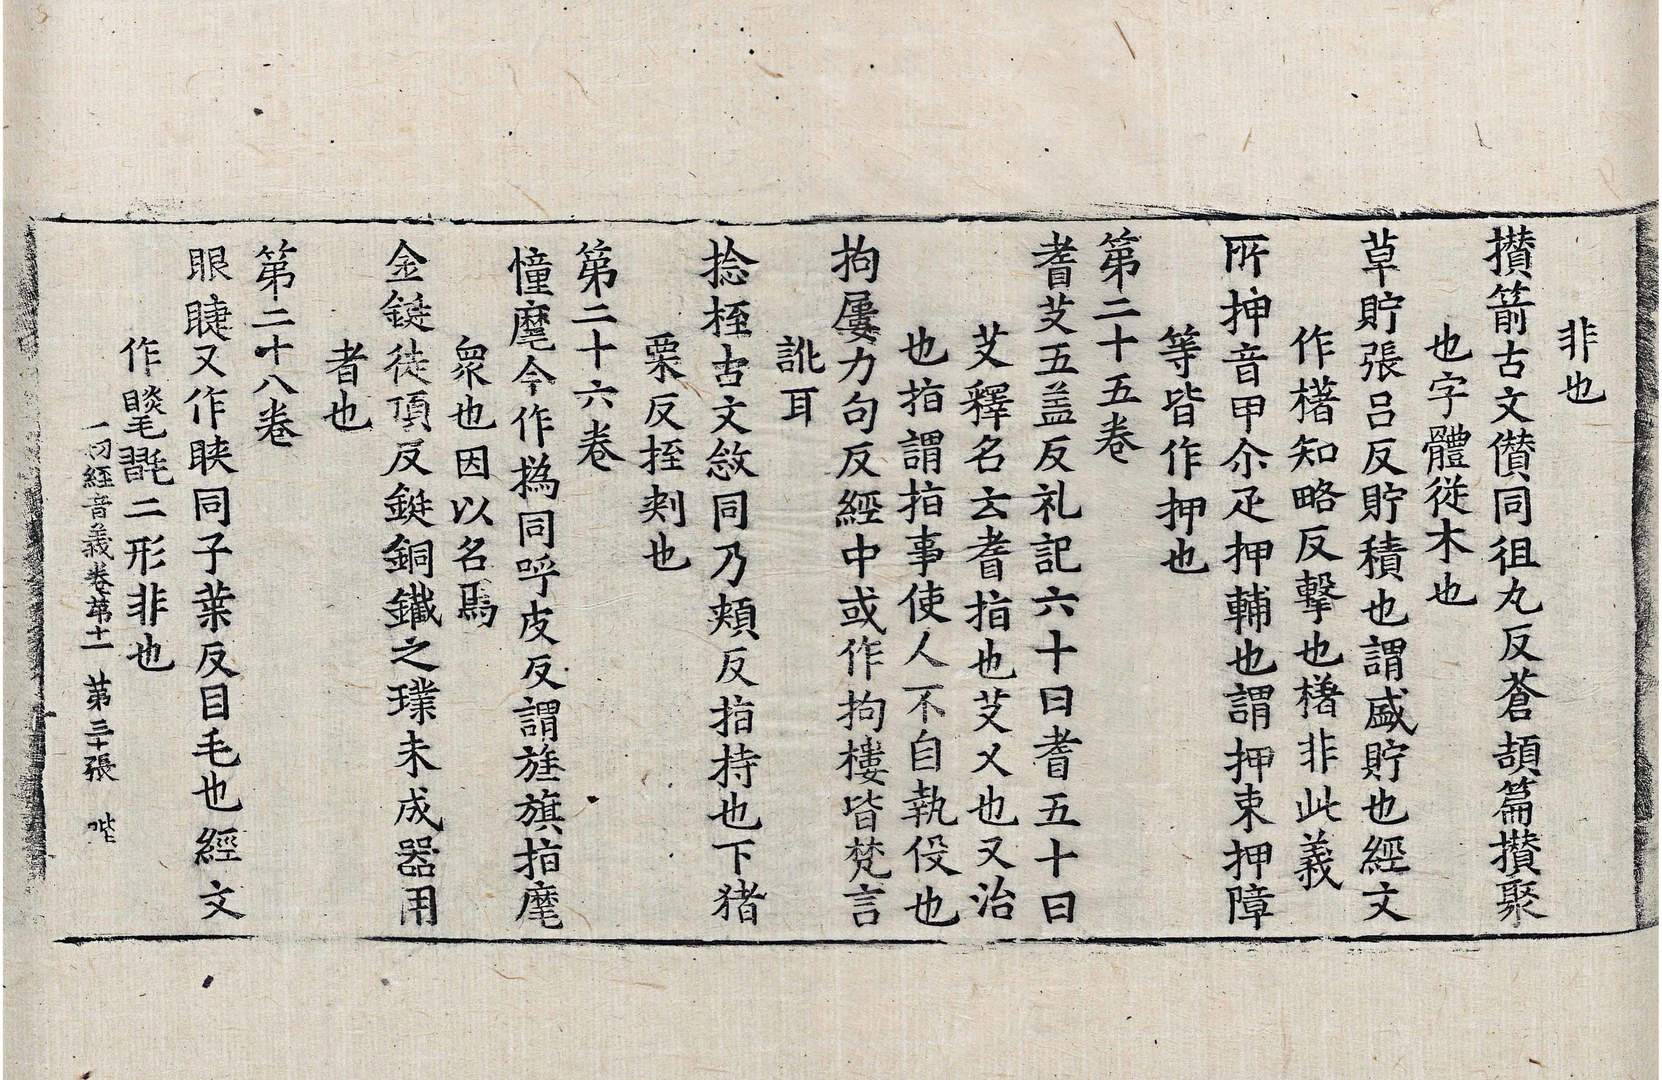 非也
攅箭古文儧同徂丸反蒼頡篇攅聚
也字體從木也
草貯張呂反貯積也謂盛貯也經文
作櫡知略反擊也櫡非此義
所押音甲尒疋押輔也謂押束押障
等皆作押也
第二十五卷
耆艾五盖反礼記六十曰耆五十曰
艾釋名云耆指也艾乂也又治
也指謂指事使人不自執伇也
拘屢力句反經中或作拘樓皆梵言
訛耳
捻挃古文敜同乃頰反指持也下猪
栗反挃刾也
第二十六卷
憧麾今作撝同呼皮反謂旌旗指麾
衆也因以名焉
金鋌徒頂反鋌銅鐵之璞未成器用
者也
第二十八卷
眼睫又作䀹同子葉反目毛也經文
作二形非也
一切經音義卷第十一 第三十張